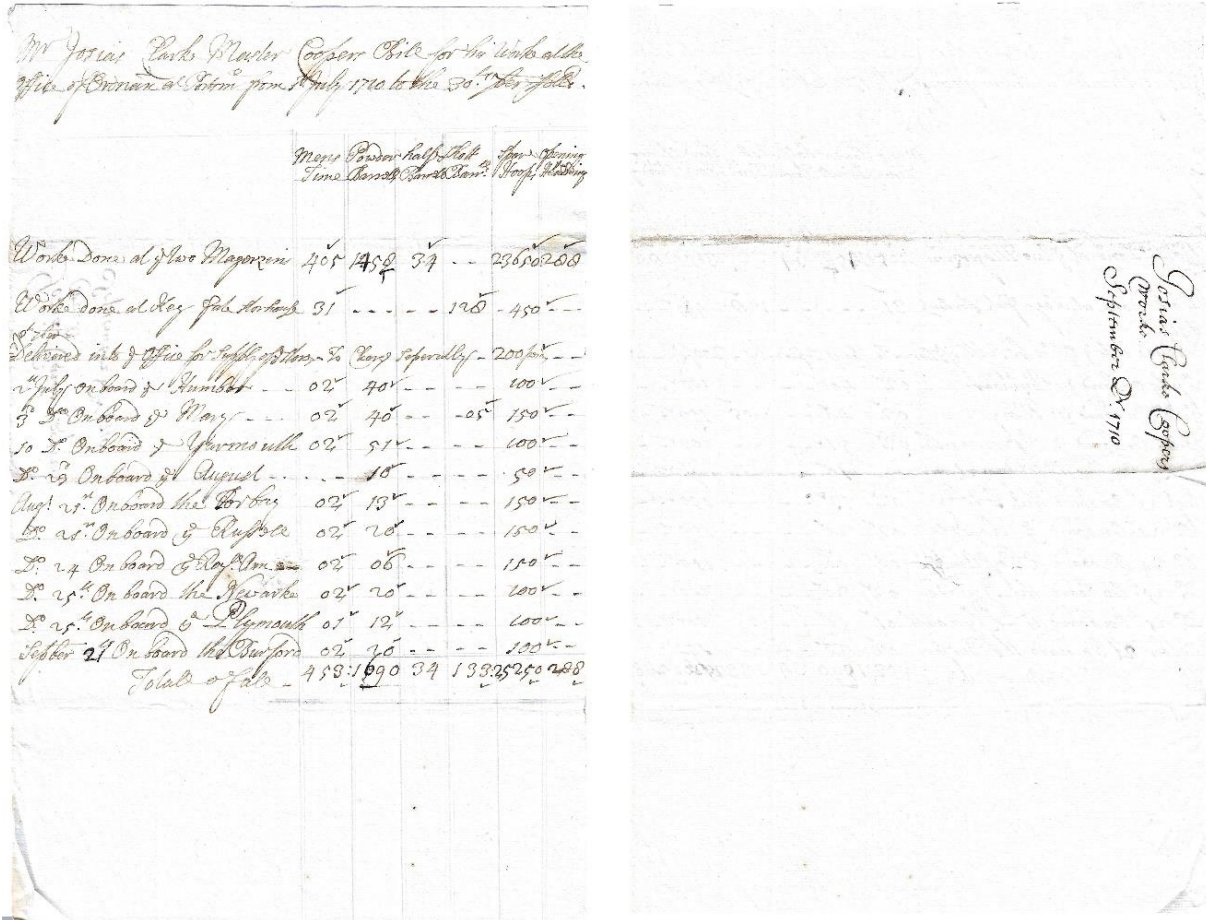 Mr Josias Clark Master Coopers Bill for his Worke at the
Office of Ordnan at Portsmo from 1st July 1710 to the 30th 7ber
Mens Powder half Shott Spar Opening
Time Barrells Barrells Barrlls Hoops & Heading
Worke Done at ye two Magerzin 405 1458 34 - - 23650 288
Worke done at Key Storhouse 31 - - - - 128 - 450 - -
Delivered into ye Office for - To Seperally - 200 - -
2th July Onboard ye Humber - - 02 40 - - - - 100 - -
3d Do Onboard ye Mary - - - 02 40 - - 05 150 - -
10 Do Onboard ye Yarmouth 02 51 - - - - 100 - -
Do 29 Onboard ye August - - - - - 18 - - - - 50 - -
Augt 21st Onboard the Torbay 02 13 - - - - 150 - -
Do 21st Onboard ye Russele 02 20 - - - - 150 - -
Do 24 Onboard ye Royl Ann 02 06 - - - - 150 - -
Do 25th Onboard the Newarke 02 20 - - - - 100 - -
Do 25th Onboard ye Plymouth 01 12 - - - - 100 - -
September 21 Onboard the Burford 02 20 - - - - 100 - -
Totale 453 : 1690 34 133 25250 288
Josias Clarks Coopers
Works
September Qr. 1710